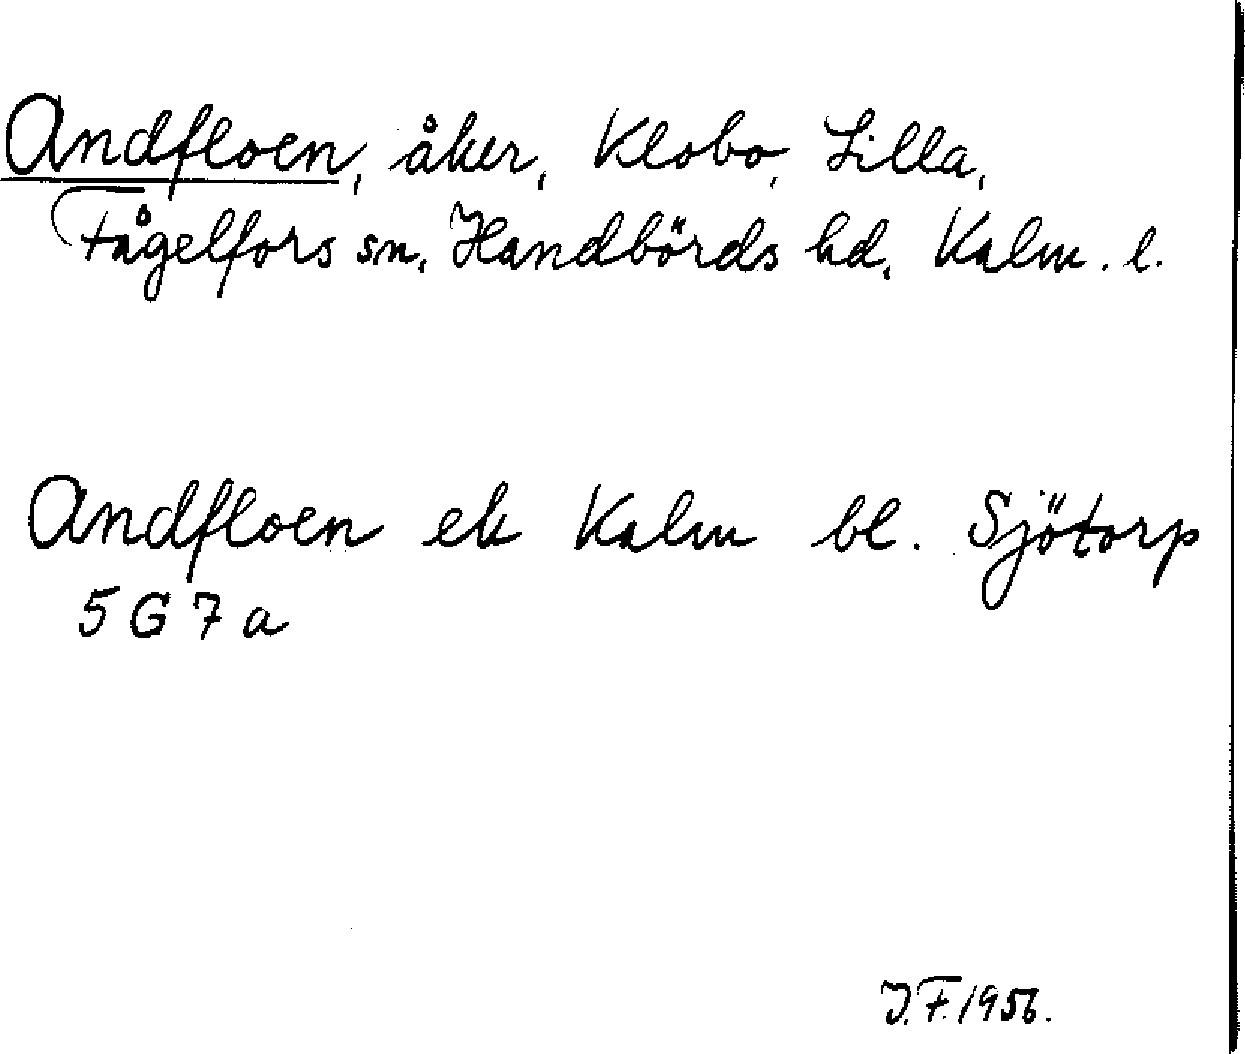 Andfloen, åker, Klobo, Lilla,
Fågelfors sn, Handbörds hd, Kalm. l.
Andfloen ek Kalm bl. Sjötorp
5 G 7 a
J.F. 1956.